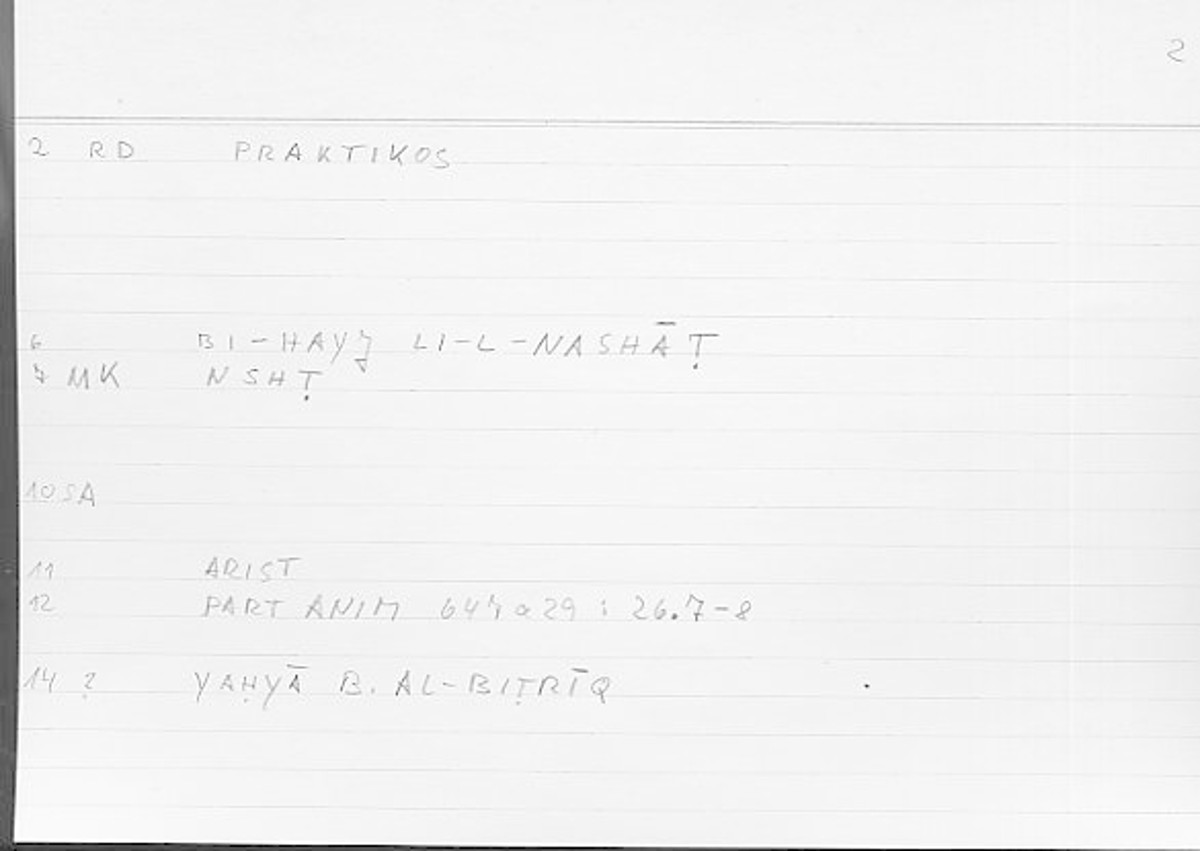 2
2 RD PRAKTIKOS
6 BI-HAYJ LI-L-NASHĀṬ
7 MK NSHṬ
10 SA
11 ARIST
12 PART ANIM 644a29 : 26.7-8
14 ? YAḤYĀ B. AL-BIṬRĪQ